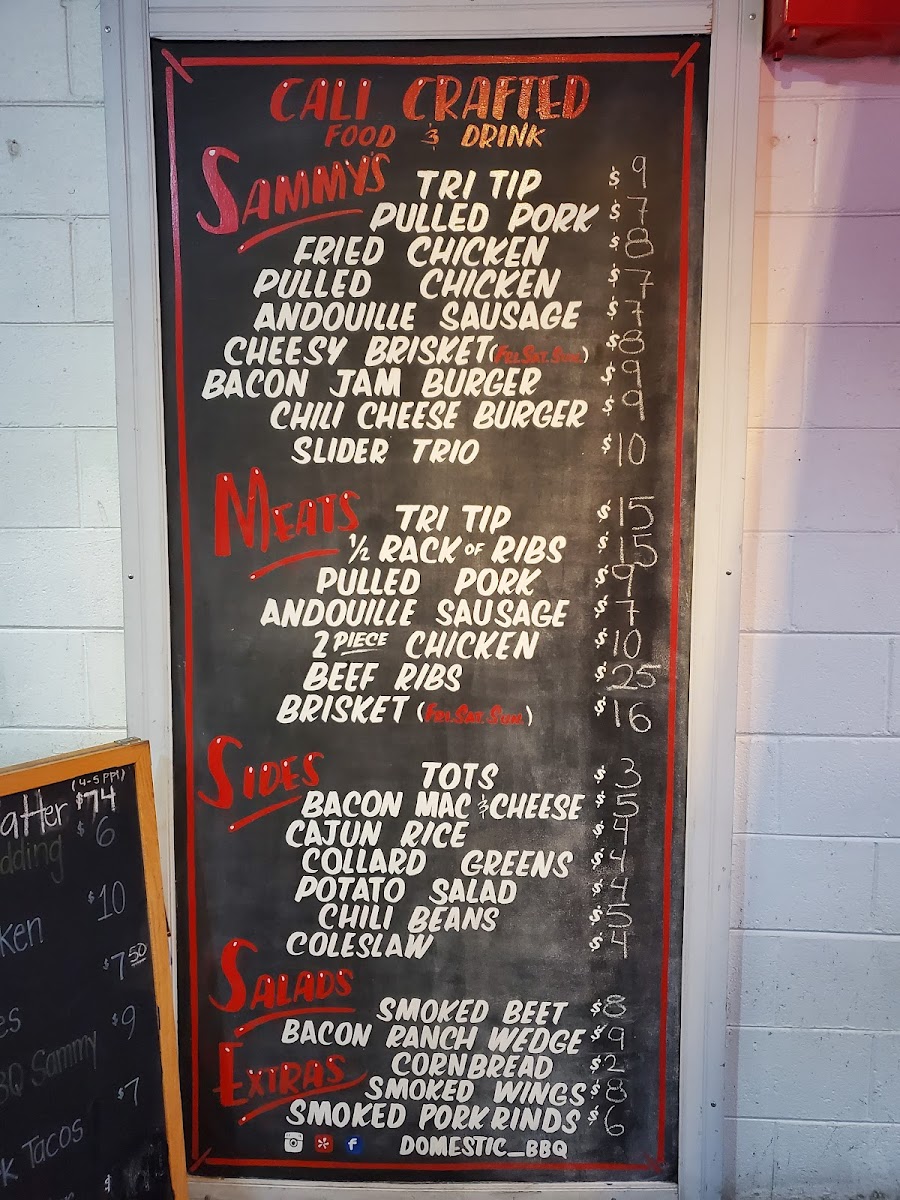 CALI CRAFTED
FOOD & DRINK
SAMMY'S
TRI TIP $9
PULLED PORK $7
FRIED CHICKEN $8
PULLED CHICKEN $7
ANDOUILLE SAUSAGE $7
CHEESY BRISKET (FRI. SAT. SUN.) $8
BACON JAM BURGER $9
CHILI CHEESE BURGER $9
SLIDER TRIO $10
MEATS
TRI TIP $15
1/2 RACK OF RIBS $15
PULLED PORK $9
ANDOUILLE SAUSAGE $7
2 PIECE CHICKEN $10
BEEF RIBS $25
BRISKET (FRI. SAT. SUN.) $16
SIDES
TOTS $3
BACON MAC & CHEESE $5
CAJUN RICE $4
COLLARD GREENS $4
POTATO SALAD $4
CHILI BEANS $5
COLESLAW $4
SALADS
SMOKED BEET $8
BACON RANCH WEDGE $9
EXTRAS
CORNBREAD $2
SMOKED WINGS $8
SMOKED PORK RINDS $6
DOMESTIC_BBQ
(4-5 PPl)
atter $74
dding $6
ken $10
$7 50
es $9
BQ Sammy
$7
k Tacos
$